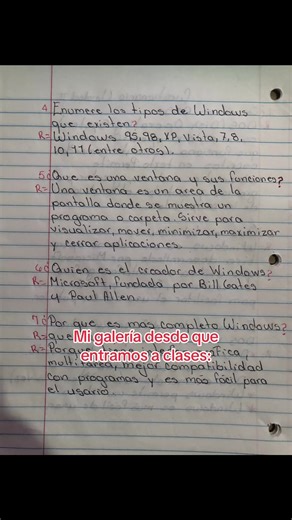 4 Enumere los tipos de Windows
que existen?
R= Windows 95, 98, XP, Vista, 7, 8,
10, 11 (entre otros).
5 ¿Que es una ventana y sus funciones?
R= Una ventana es un area de la
pantalla donde se muestra un
programa o carpeta. Sirve para
visualizar, mover, minimizar, maximizar
y cerrar aplicaciones.
6 ¿Quien es el creador de Windows?
R= Microsoft, fundada por Bill Gates
y Paul Allen.
7 ¿Por que es mas completo Windows?
R= que
Mi galería desde que
entramos a clases:
R= Porque
multitarea, mejor compatibilidad
con programas y es más fácil para
el usario.